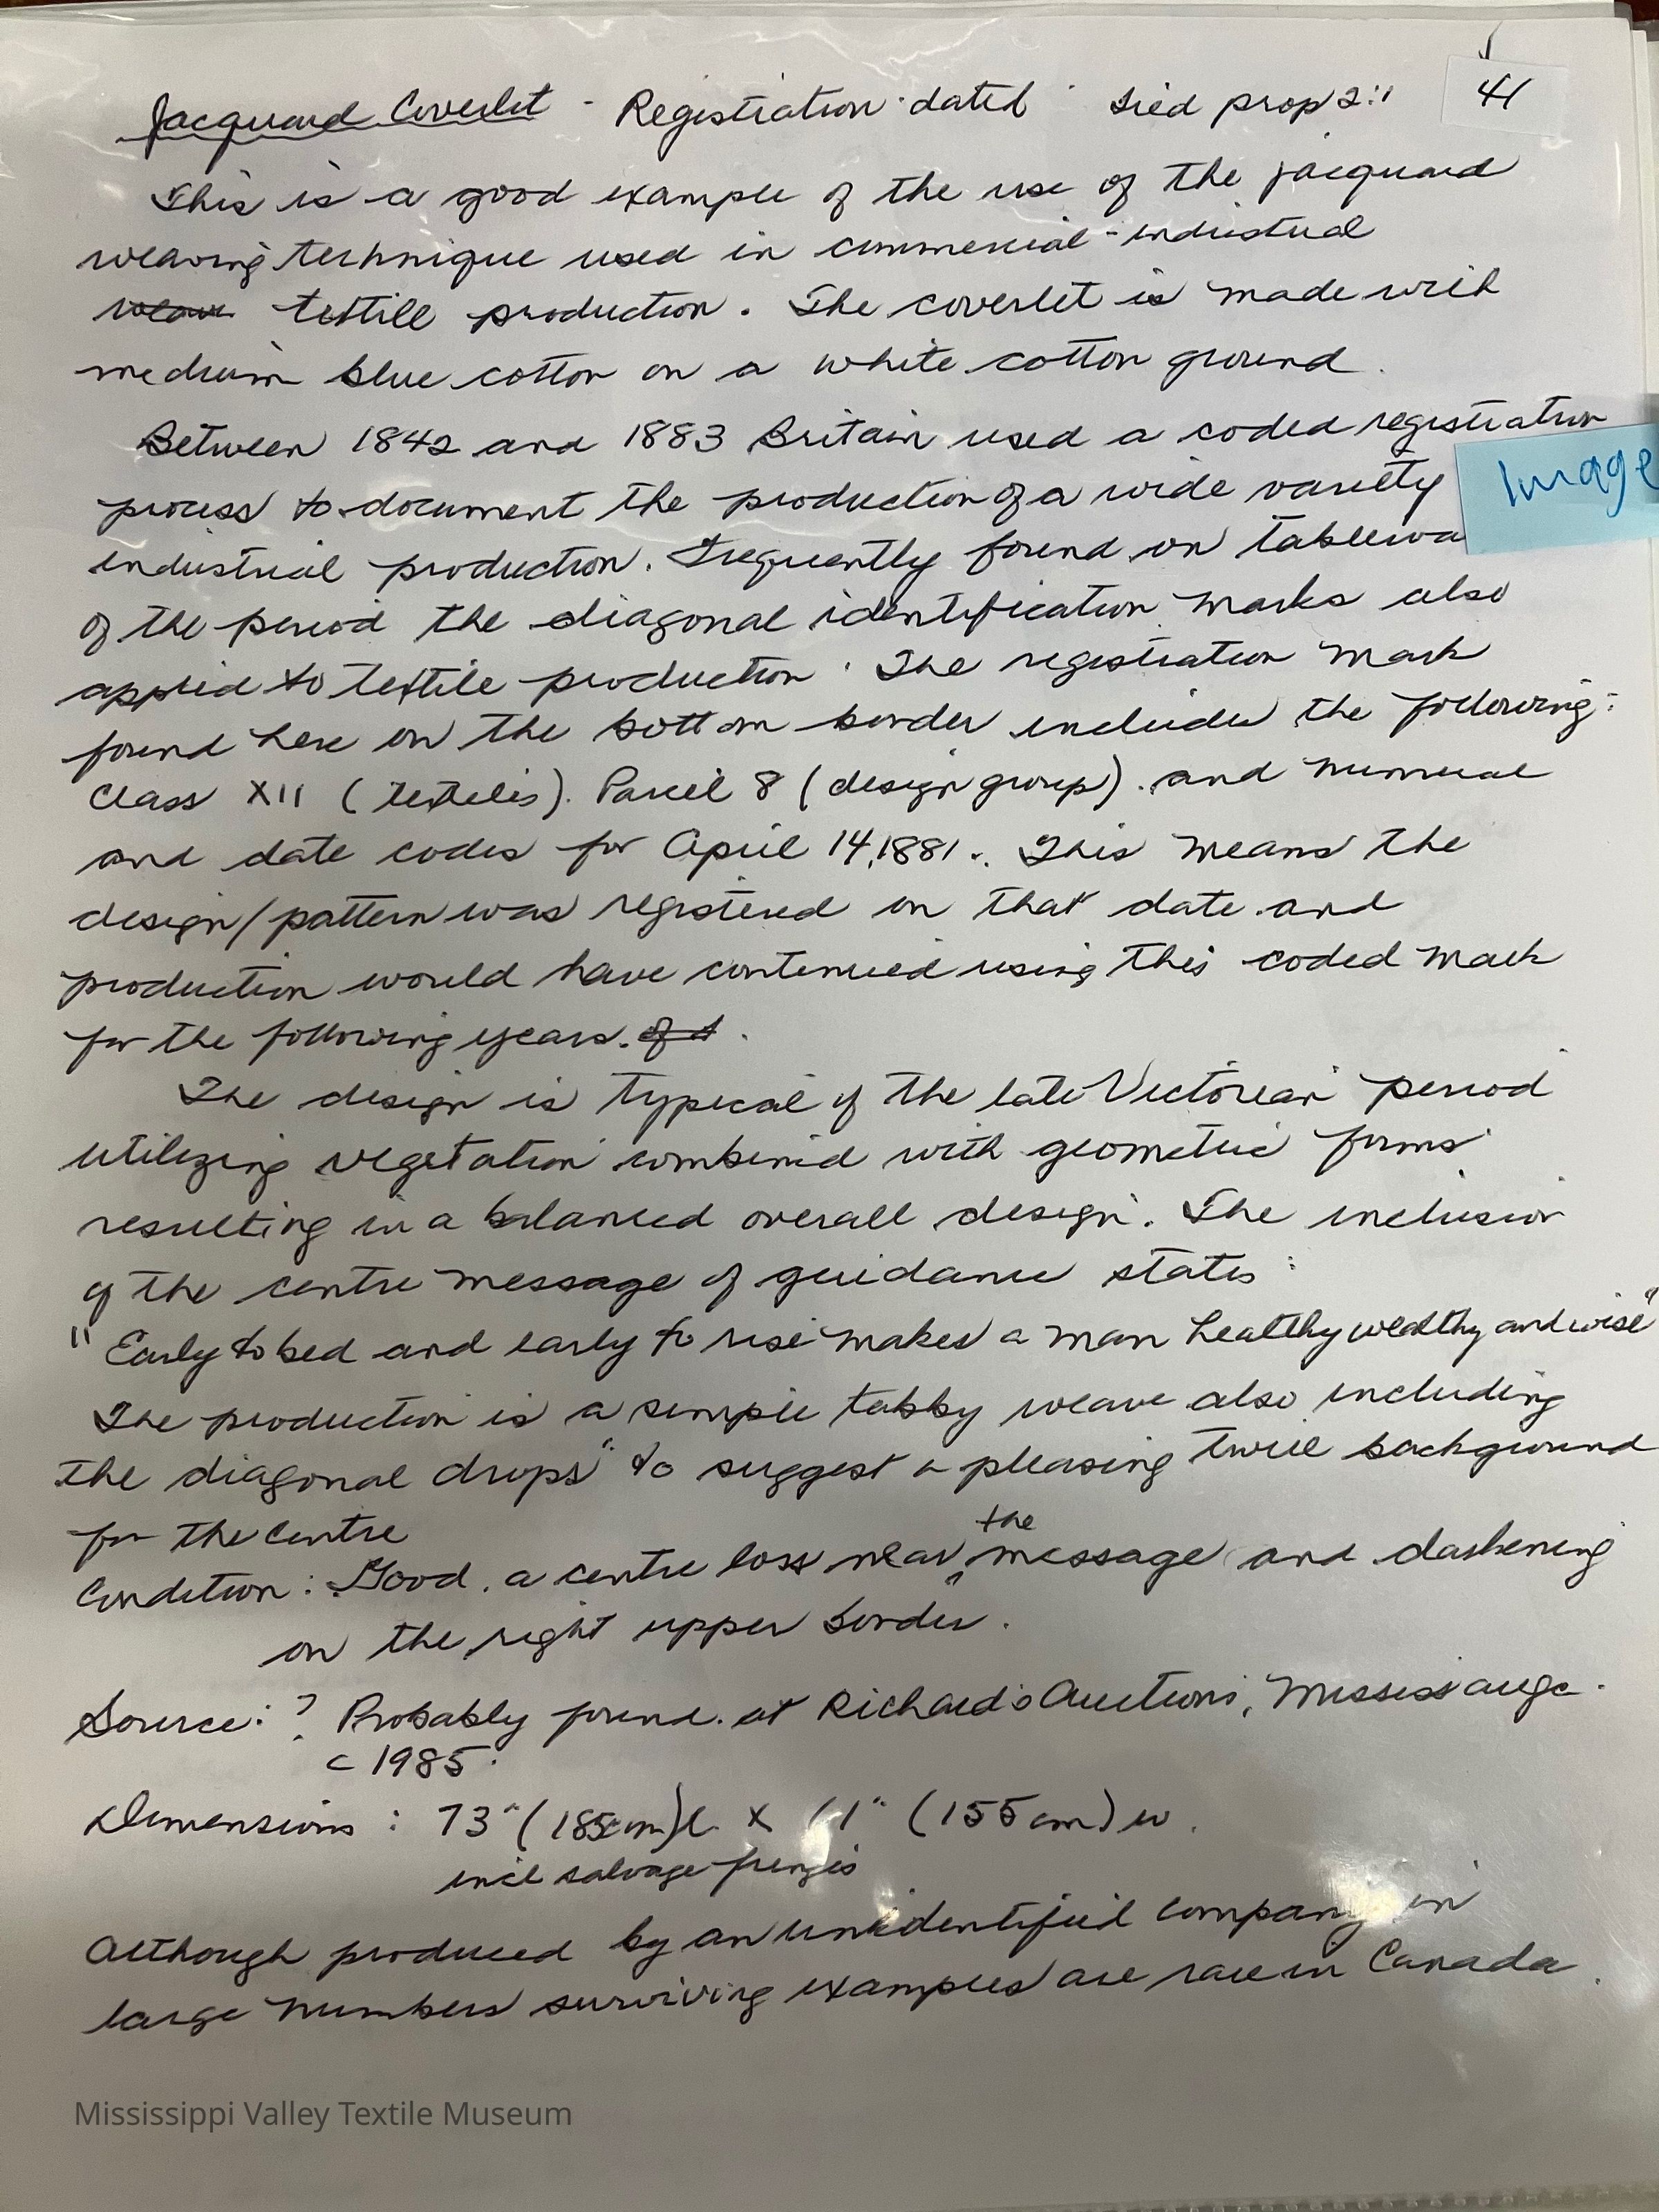 Jacquard Coverlet - Registration dated 41
This is a good example of the use of the jacquard
weaving technique used in commercial-industrial
weave textile production. The coverlet is made with
medium blue cotton on a white cotton ground.
Between 1842 and 1883 Britain used a coded registration
process to document the production of a wide variety
Image
industrial production. Frequently found on tablewa
of the period the diagonal identification marks also
applied to textile production. The registration mark
found here on the bottom border includes the following:
Class XII (textiles). Parcel 8 (design group). and numeral
and date codes for April 14, 1881. This means the
design/pattern was registered on that date and
production would have continued using this coded mark
for the following years.
The design is typical of the late Victorian period
utilizing vegetation combined with geometric forms
resulting in a balanced overall design. The inclusion
of the centre message of guidance states:
"Early to bed and early to rise makes a man healthy wealthy and wise"
The production is a simple tabby weave also including
the diagonal drops" to suggest a pleasing twill background
for the centre
Condition: Good. a centre loss near the message and darkening
on the right upper border.
Source: ? Probably found at Richard's Auctions, Mississauga.
c 1985.
Dimensions: 73" (185cm)l x 61" (155cm) w.
incl salvage fringes
Although produced by an unidentified company in
large numbers surviving examples are rare in Canada.
Mississippi Valley Textile Museum